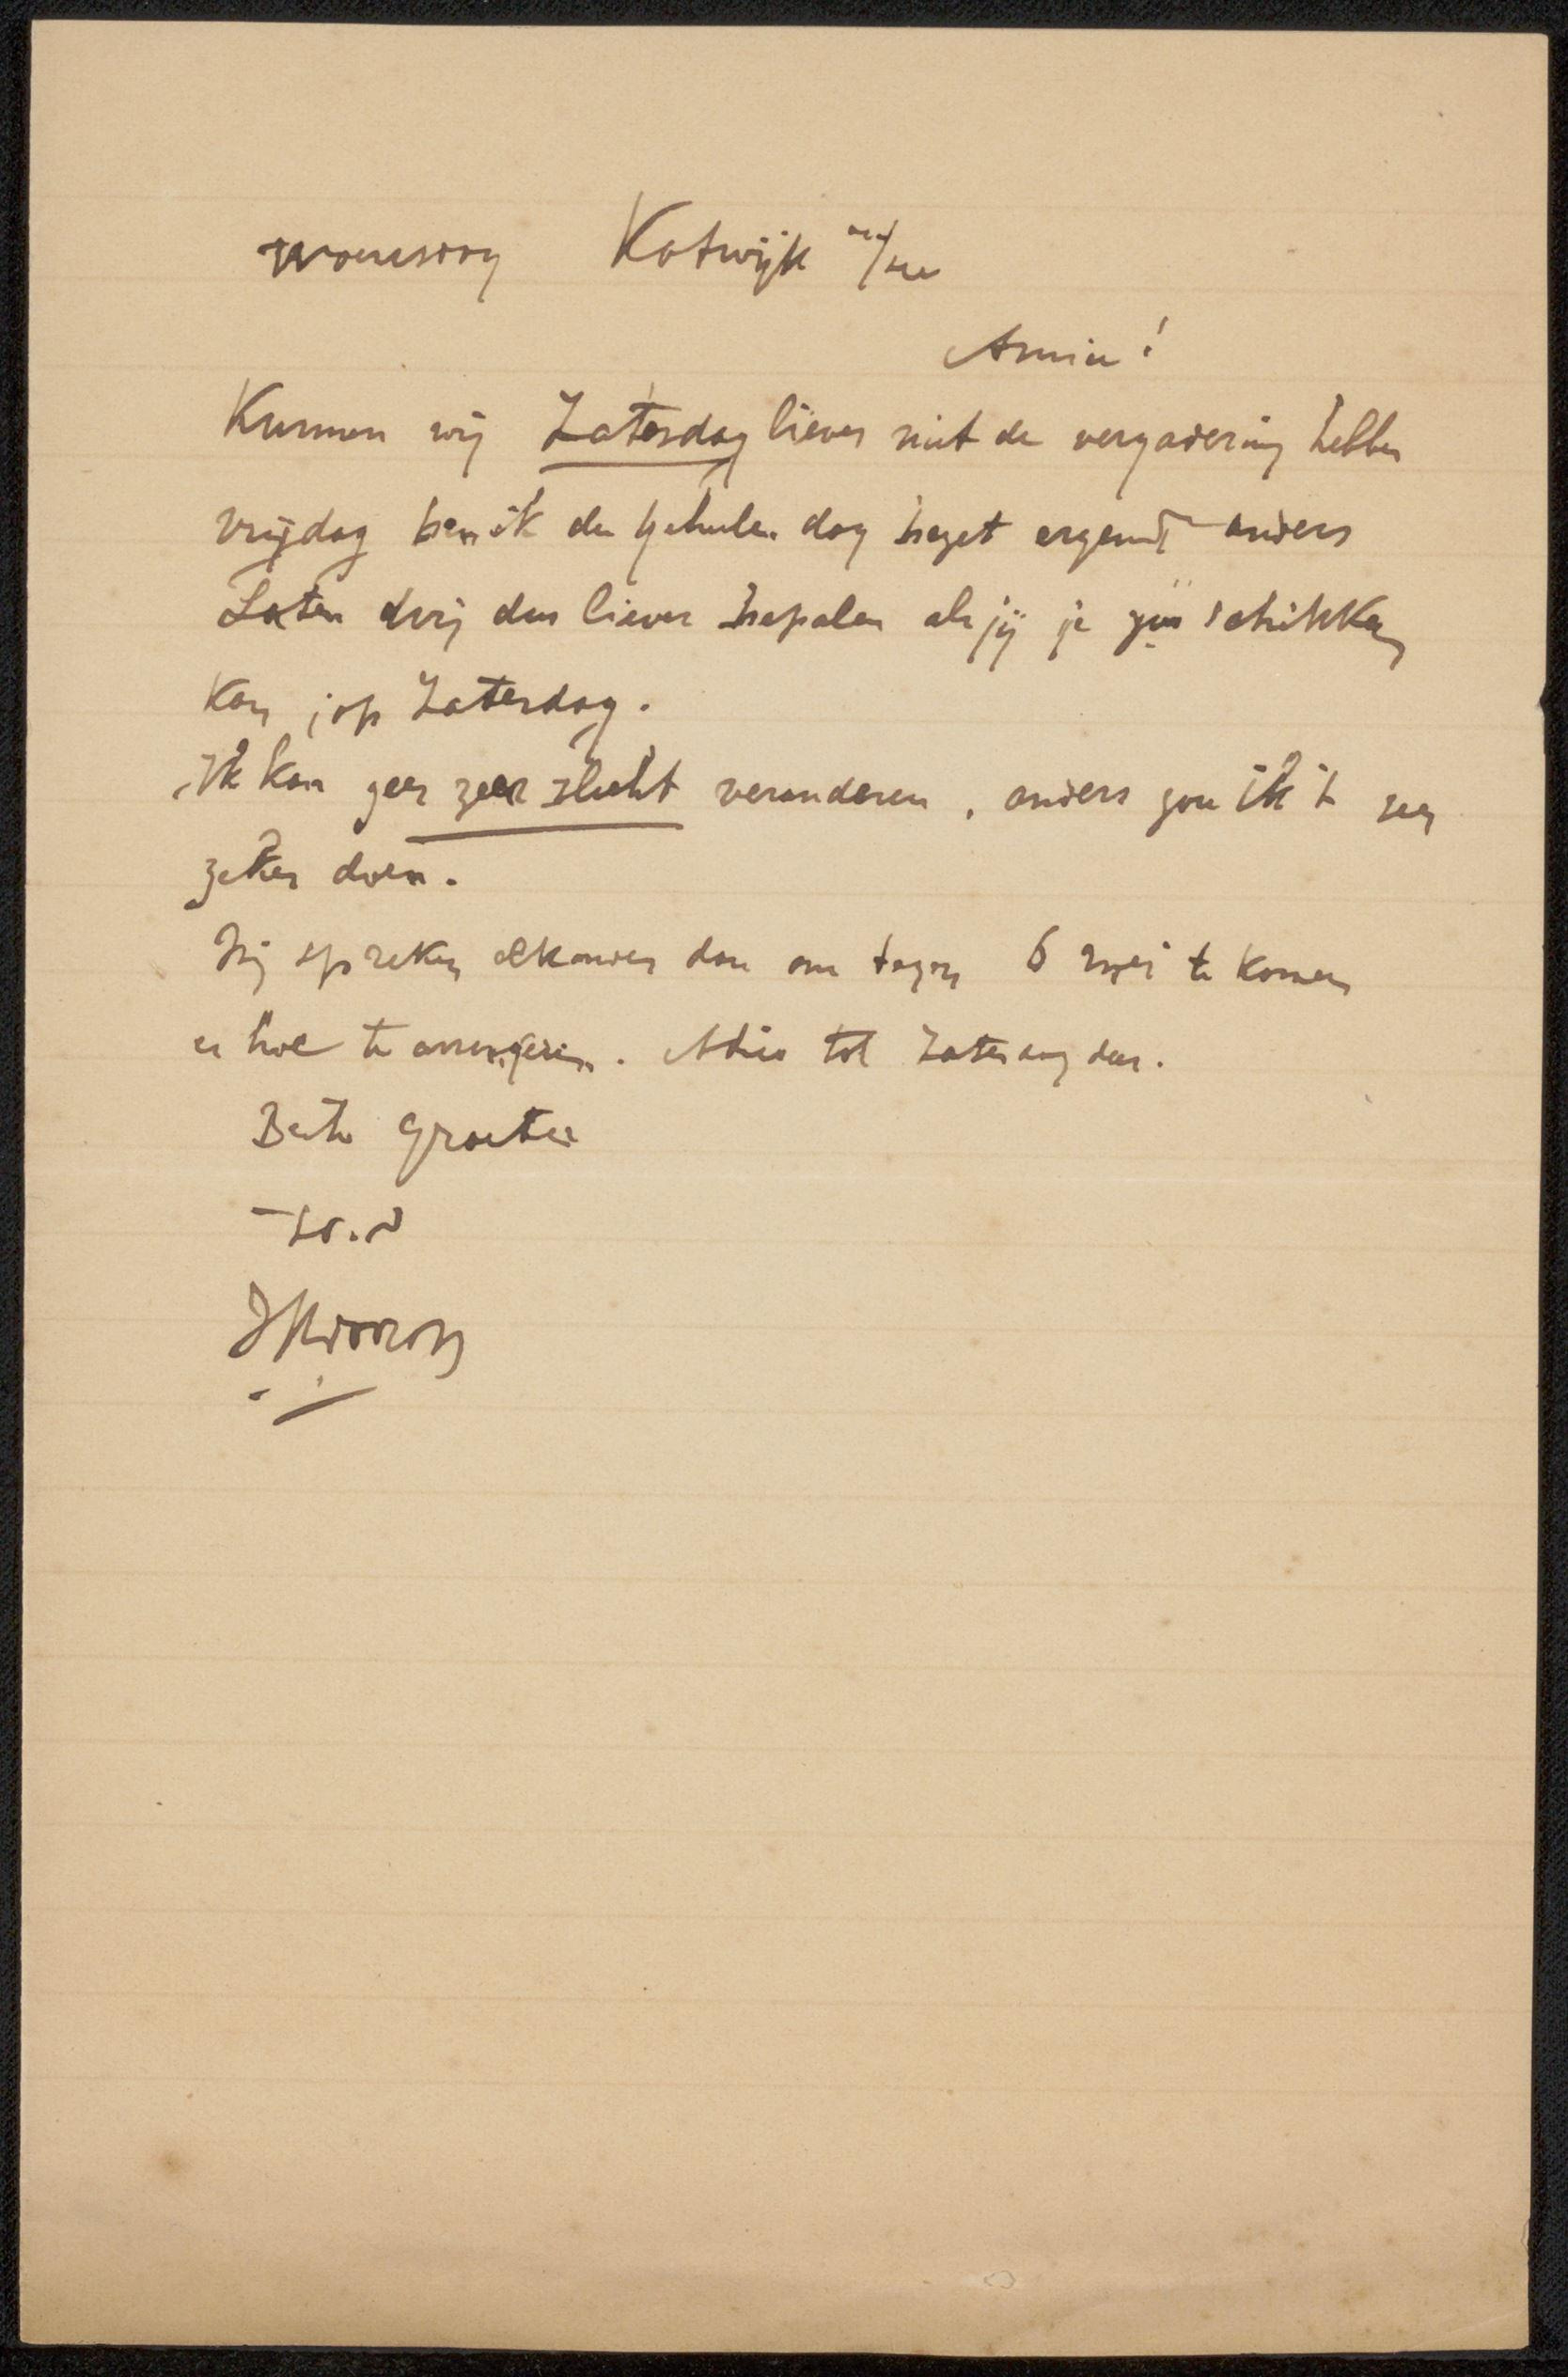 Woensdag Katwijk a/zee
Amice!
Kunnen wij Zaterdag liever niet de vergadering hebben
vrijdag ben ik den geheelen dag bezet ergens anders
Laten wij dus liever bepalen als jij je schikken
kan op Zaterdag.
Ik kan zeer slecht veranderen, anders zou ik 't
zeker doen.
Wij spreken elkander dan om tegen 6 te komen
en hoe te arrangeren. Adieu tot Zaterdag dan.
Beste Groeten